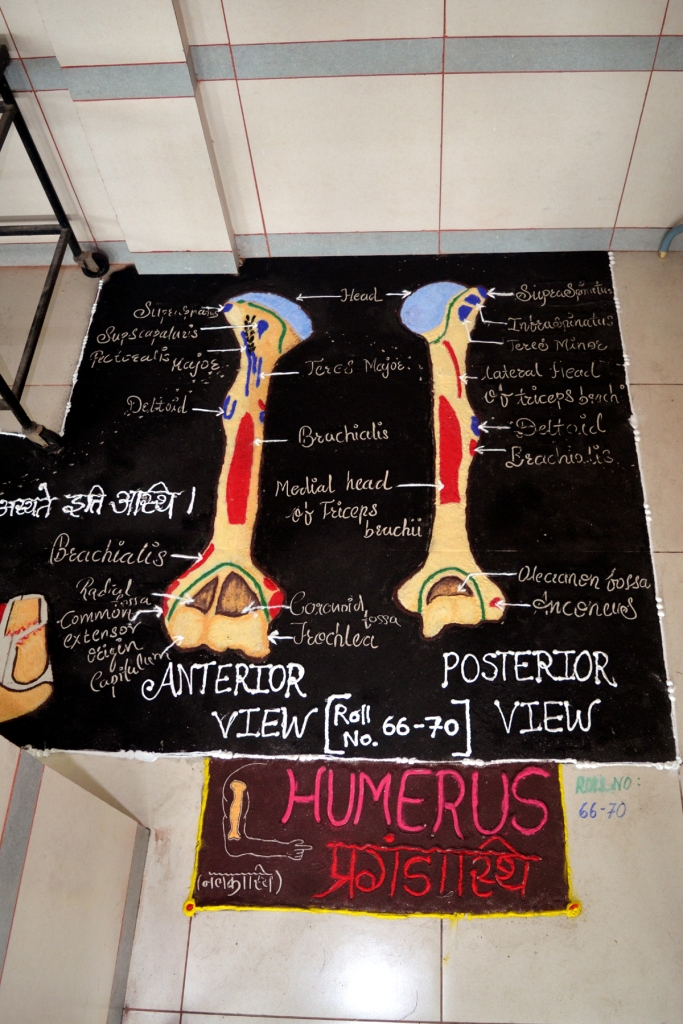 Supraspinatus
Supscapularis
Pectoralis
Major
Deltoid
Head
Teres Major
Brachialis
Medial head
of Triceps
brachii
SupraSpinatus
Infraspinatus
Teres Minor
Lateral Head
Of triceps brachii
Deltoid
Brachialis
इति अस्थि।
Brachialis
Radial
fossa
Common
extensor
origin
Capitulum
Coronoid
fossa
Trochlea
Olecranon fossa
Anconeus
ANTERIOR
VIEW
[Roll
No. 66-70]
POSTERIOR
VIEW
HUMERUS
प्रगंडास्थि
(नलकास्थि)
ROLL NO:
66-70